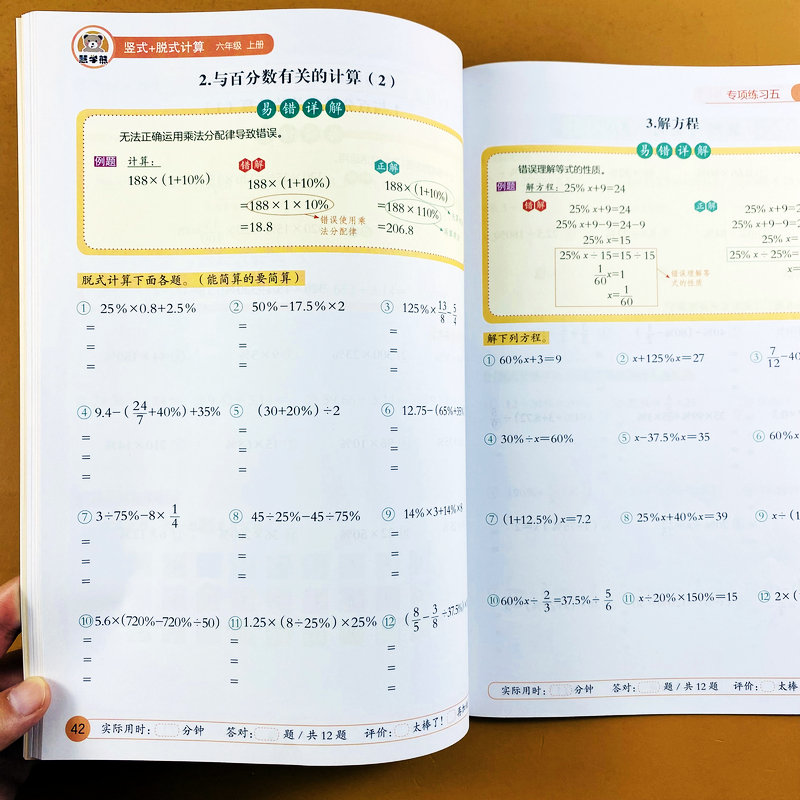 慧学熊
竖式+脱式计算 六年级 上册
2.与百分数有关的计算（2）
易错详解
无法正确运用乘法分配律导致错误。
例题 计算：
188×(1+10%)
错解
188×(1+10%)
=188×1×10%
=18.8
错误使用乘
法分配律
正解
188×(1+10%)
=188×110%
=206.8
脱式计算下面各题。（能简算的要简算）
① 25%×0.8+2.5% ② 50%−17.5%×2 ③ 125%×13/8−5/4
= = =
= = =
= = =
④ 9.4−(24/7+40%)+35% ⑤ (30+20%)÷2 ⑥ 12.75−(65%+
= = =
= = =
= = =
= = =
⑦ 3÷75%−8×1/4 ⑧ 45÷25%−45÷75% ⑨ 14%×3+14%×8
= = =
= = =
= = =
= = =
⑩ 5.6×(720%−720%÷50) ⑪ 1.25×(8÷25%)×25% ⑫ (8/5−3/8÷37.5%)
= = =
= = =
= = =
= = =
42 实际用时： 分钟 答对： 题/共12题 评价： 太棒了！
专项练习五
3.解方程
易错详解
错误理解等式的性质。
例题 解方程：25%x+9=24
错解
25%x+9=24
25%x+9−9=24−9
25%x=15
25%x÷15=15÷15
1/60x=1
x=1/60
错误理解等
式的性质
正解
25%x+9=2
25%x+9−9=2
25%x=
25%x÷25%=
x=
解下列方程。
① 60%x+3=9 ② x+125%x=27 ③ 7/12−40
④ 30%÷x=60% ⑤ x−37.5%x=35 ⑥ 60%x
⑦ (1+12.5%)x=7.2 ⑧ 25%x+40%x=39 ⑨ x÷(1
⑩ 60%x÷2/3=37.5%÷5/6 ⑪ x÷20%×150%=15 ⑫ 2×(
实际用时： 分钟 答对： 题/共12题 评价： 太棒